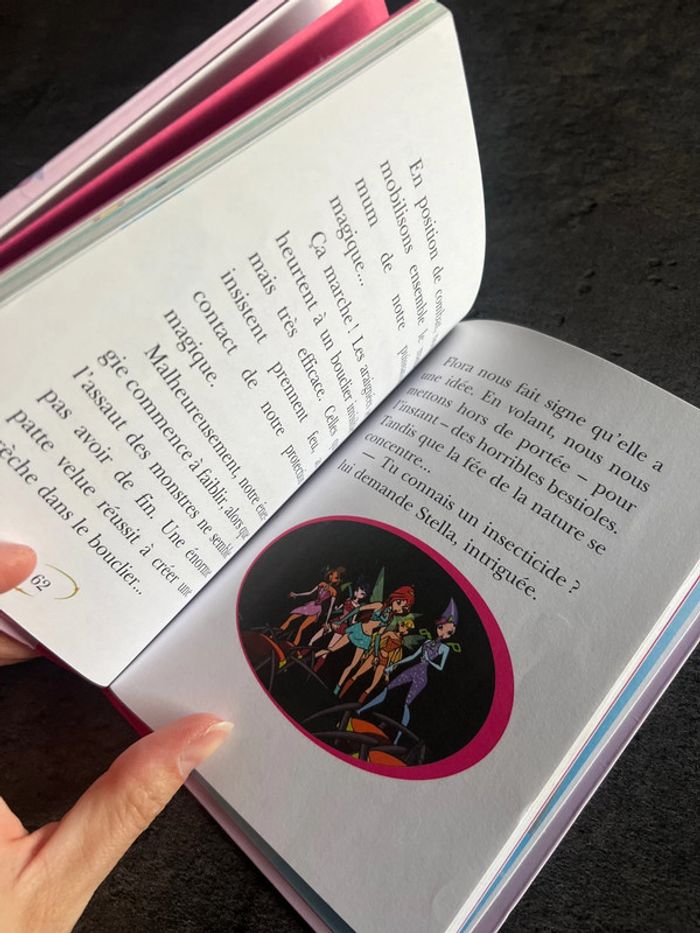 En position de combat,
mobilisons ensemble le
mum de notre
magique...
Ça marche ! Les araignées
heurtent à un bouclier
mais très efficace. Celles
insistent prennent feu,
contact de notre
magique.
Malheureusement, notre
gie commence à faiblir, alors que
l'assaut des monstres ne semble
pas avoir de fin. Une énorme
patte velue réussit à créer une
rèche dans le bouclier...
62
Flora nous fait signe qu'elle a
une idée. En volant, nous nous
mettons hors de portée – pour
l'instant – des horribles bestioles.
Tandis que la fée de la nature se
concentre...
– Tu connais un insecticide ?
lui demande Stella, intriguée.